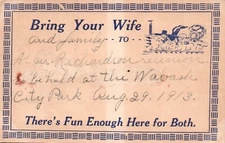 Bring Your Wife
and family
TO
A Richardson reunion
to be held at the Wabash
City Park Aug. 29, 1913.
There's Fun Enough Here for Both.